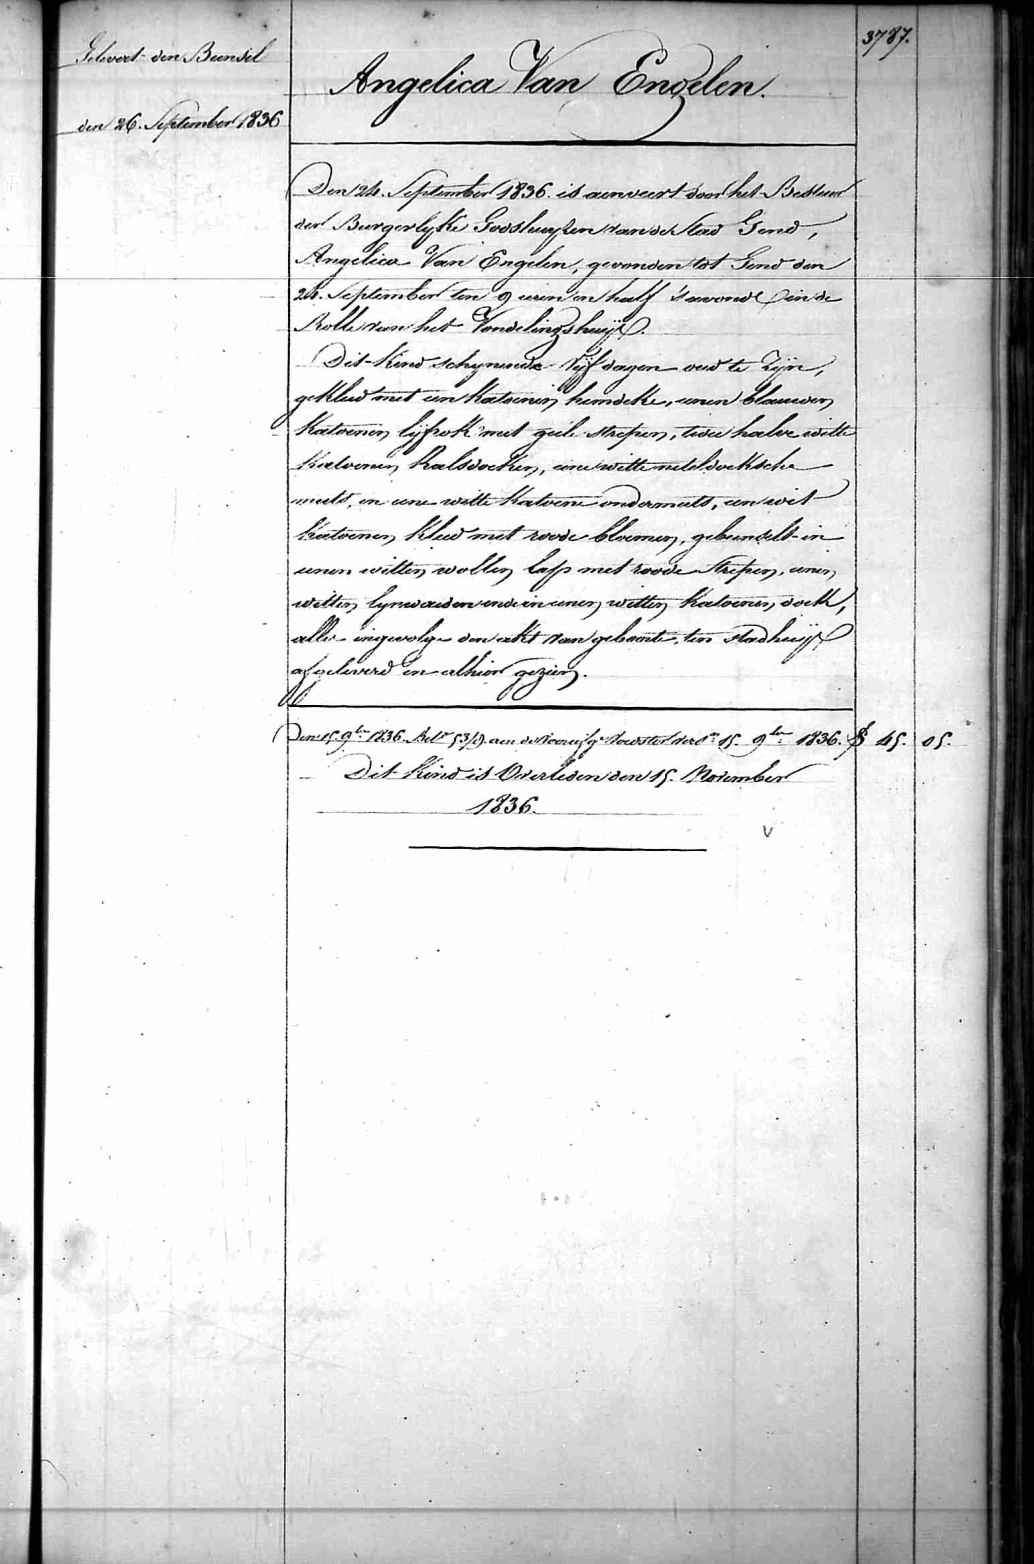 3787.
Gelevert den Bundel
den 26. September 1836
Angelica Van Engelen.
Den 24. September 1836. is aenveert door het Bestuur
der Burgerlyke Godshuyzen van de Stad Gend,
Angelica Van Engelen, gevonden tot Gend den
24. September ten 9 uren en half 's avonds in de
Rolle van het Vondelingshuys.
Dit kind schynende Vyf dagen oud te Zyn,
gekleed met een katoenen hemdeke, eenen blauwen
katoenen lyfrok met geele strepen, twee halve witte
katoenen halsdoeken, eene witte neteldoeksche
muts, en eene witte katoene ondermuts, een wit
katoenen kleed met roode bloemen, gebundelt in
eenen witten wollen lap met roode strepen, eenen
witten lynwaeden ende in eenen witten katoenen doek,
alles ingevolge den akt van geboorte, ten stadhuyse
afgeleverd en alhier gezien.
Den 15. 9ber 1836. aen de 15. 9ber 1836. 45. 05.
Dit kind is Overleden den 15. November
1836.